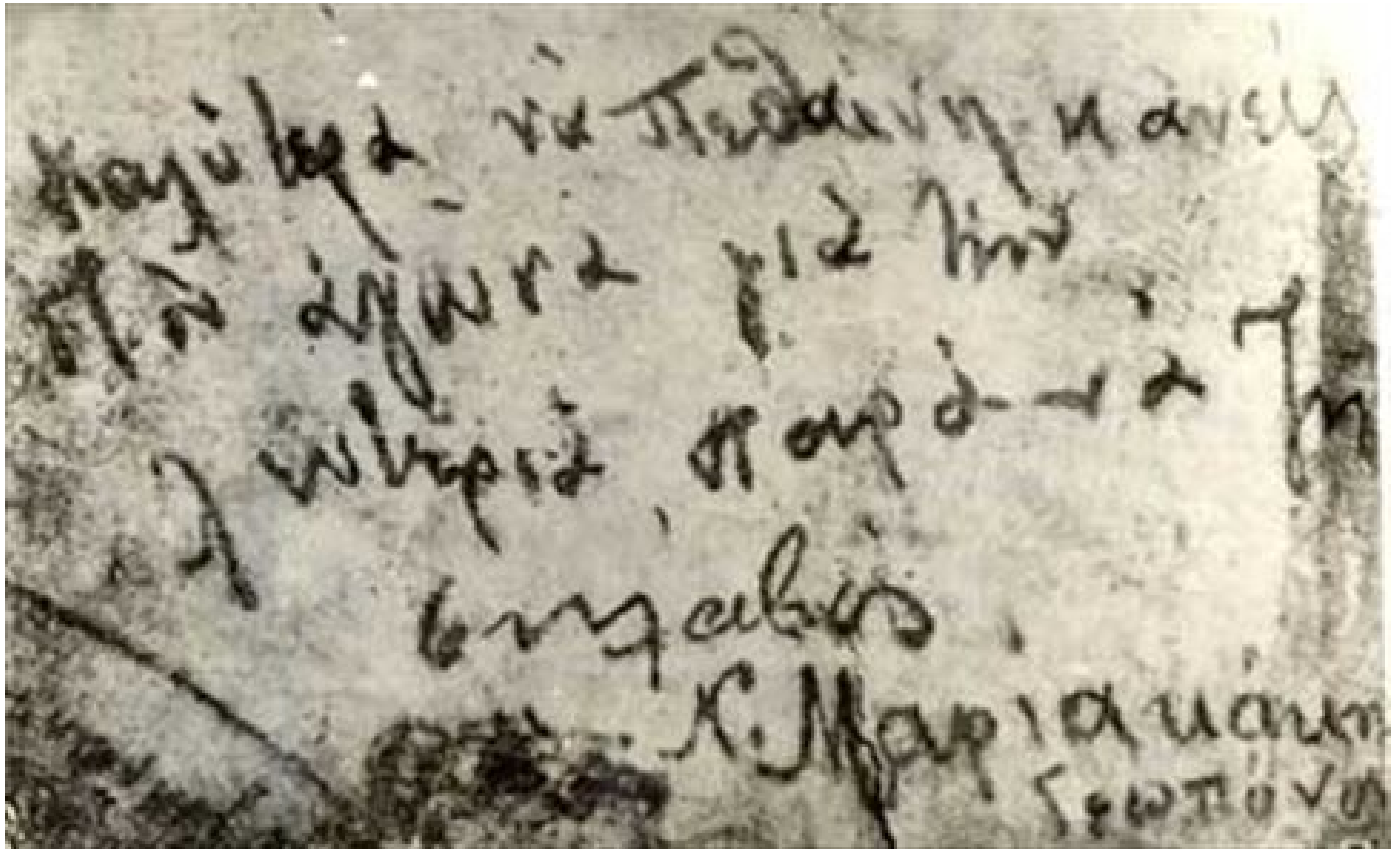 καλύτερα νὰ πεθαίνη κανείς
στὸν ἀγῶνα γιὰ τὴν
λευτεριὰ παρὰ νὰ ζῆ
σκλάβος.
Ν. Μαριακάκη
Γεωπόνος